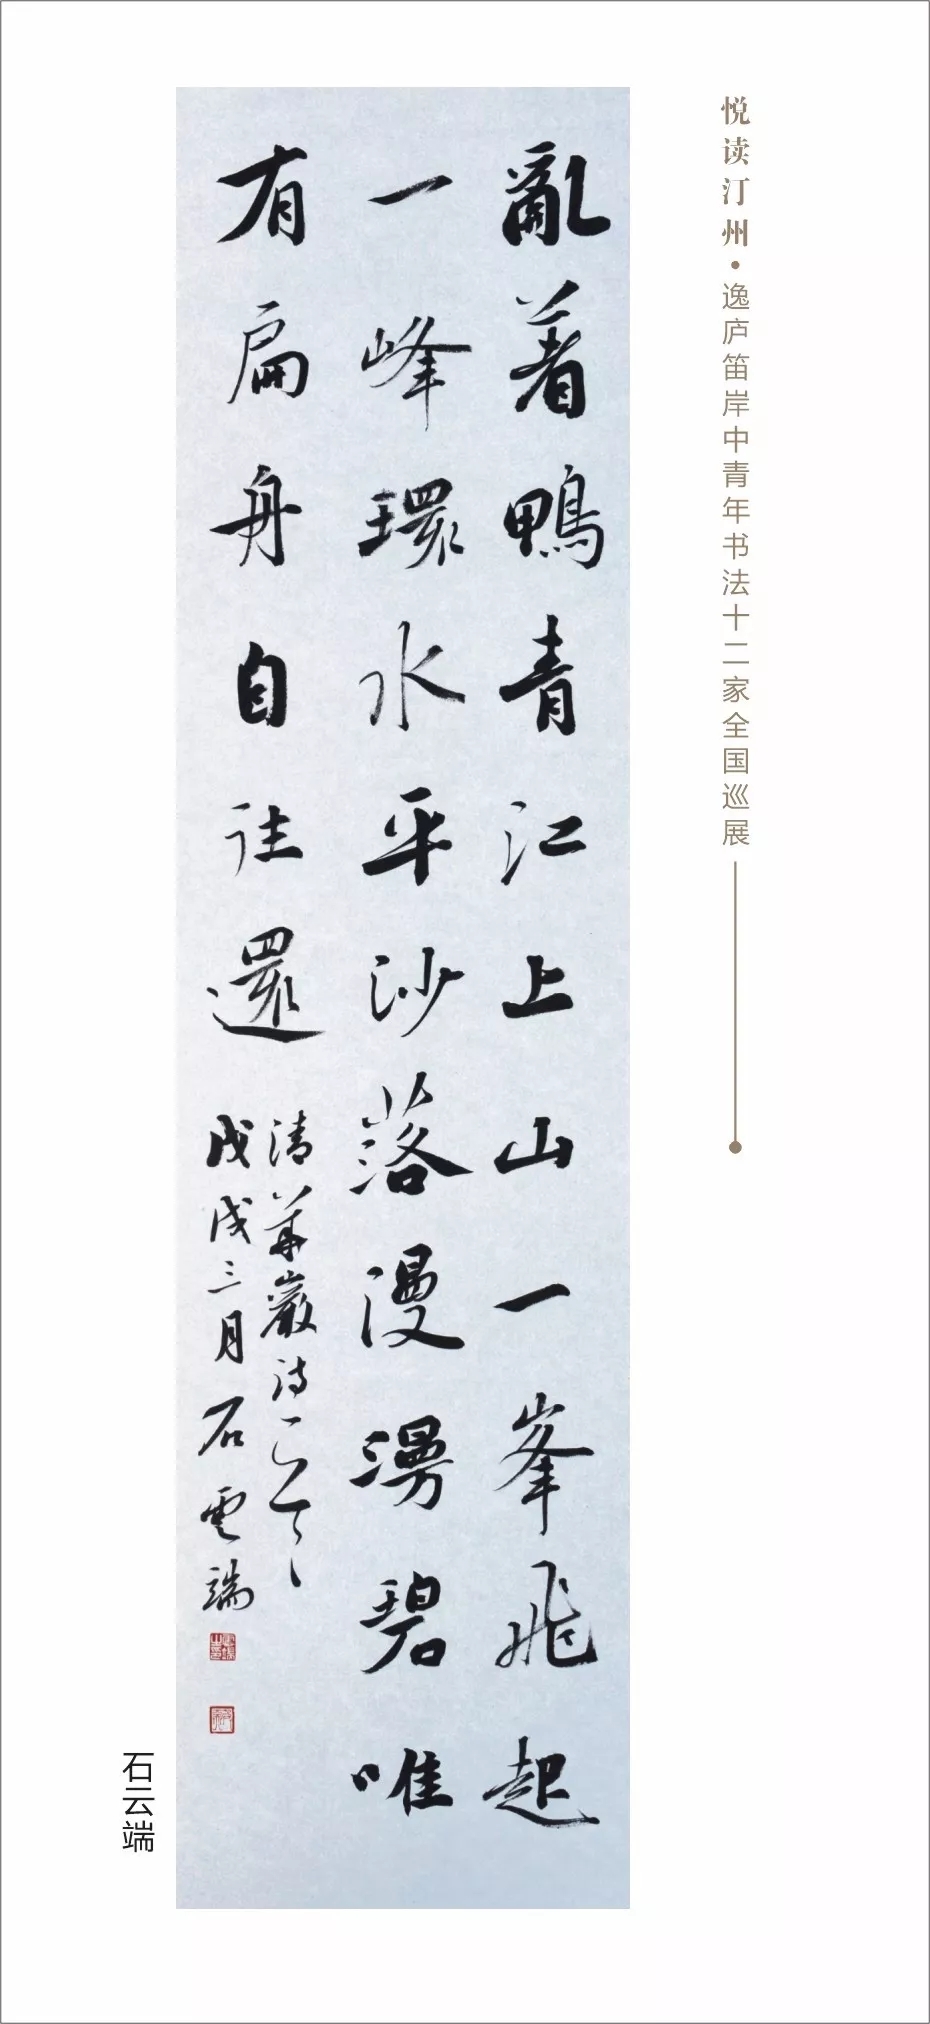 悦读汀州•逸庐笛岸中青年书法十二家全国巡展
亂著鴨青江上山一峯飛起
一峰環水平沙落漫漫碧唯
有扁舟自往還
清華巖詩一首
戊戌三月石雲端
石云端